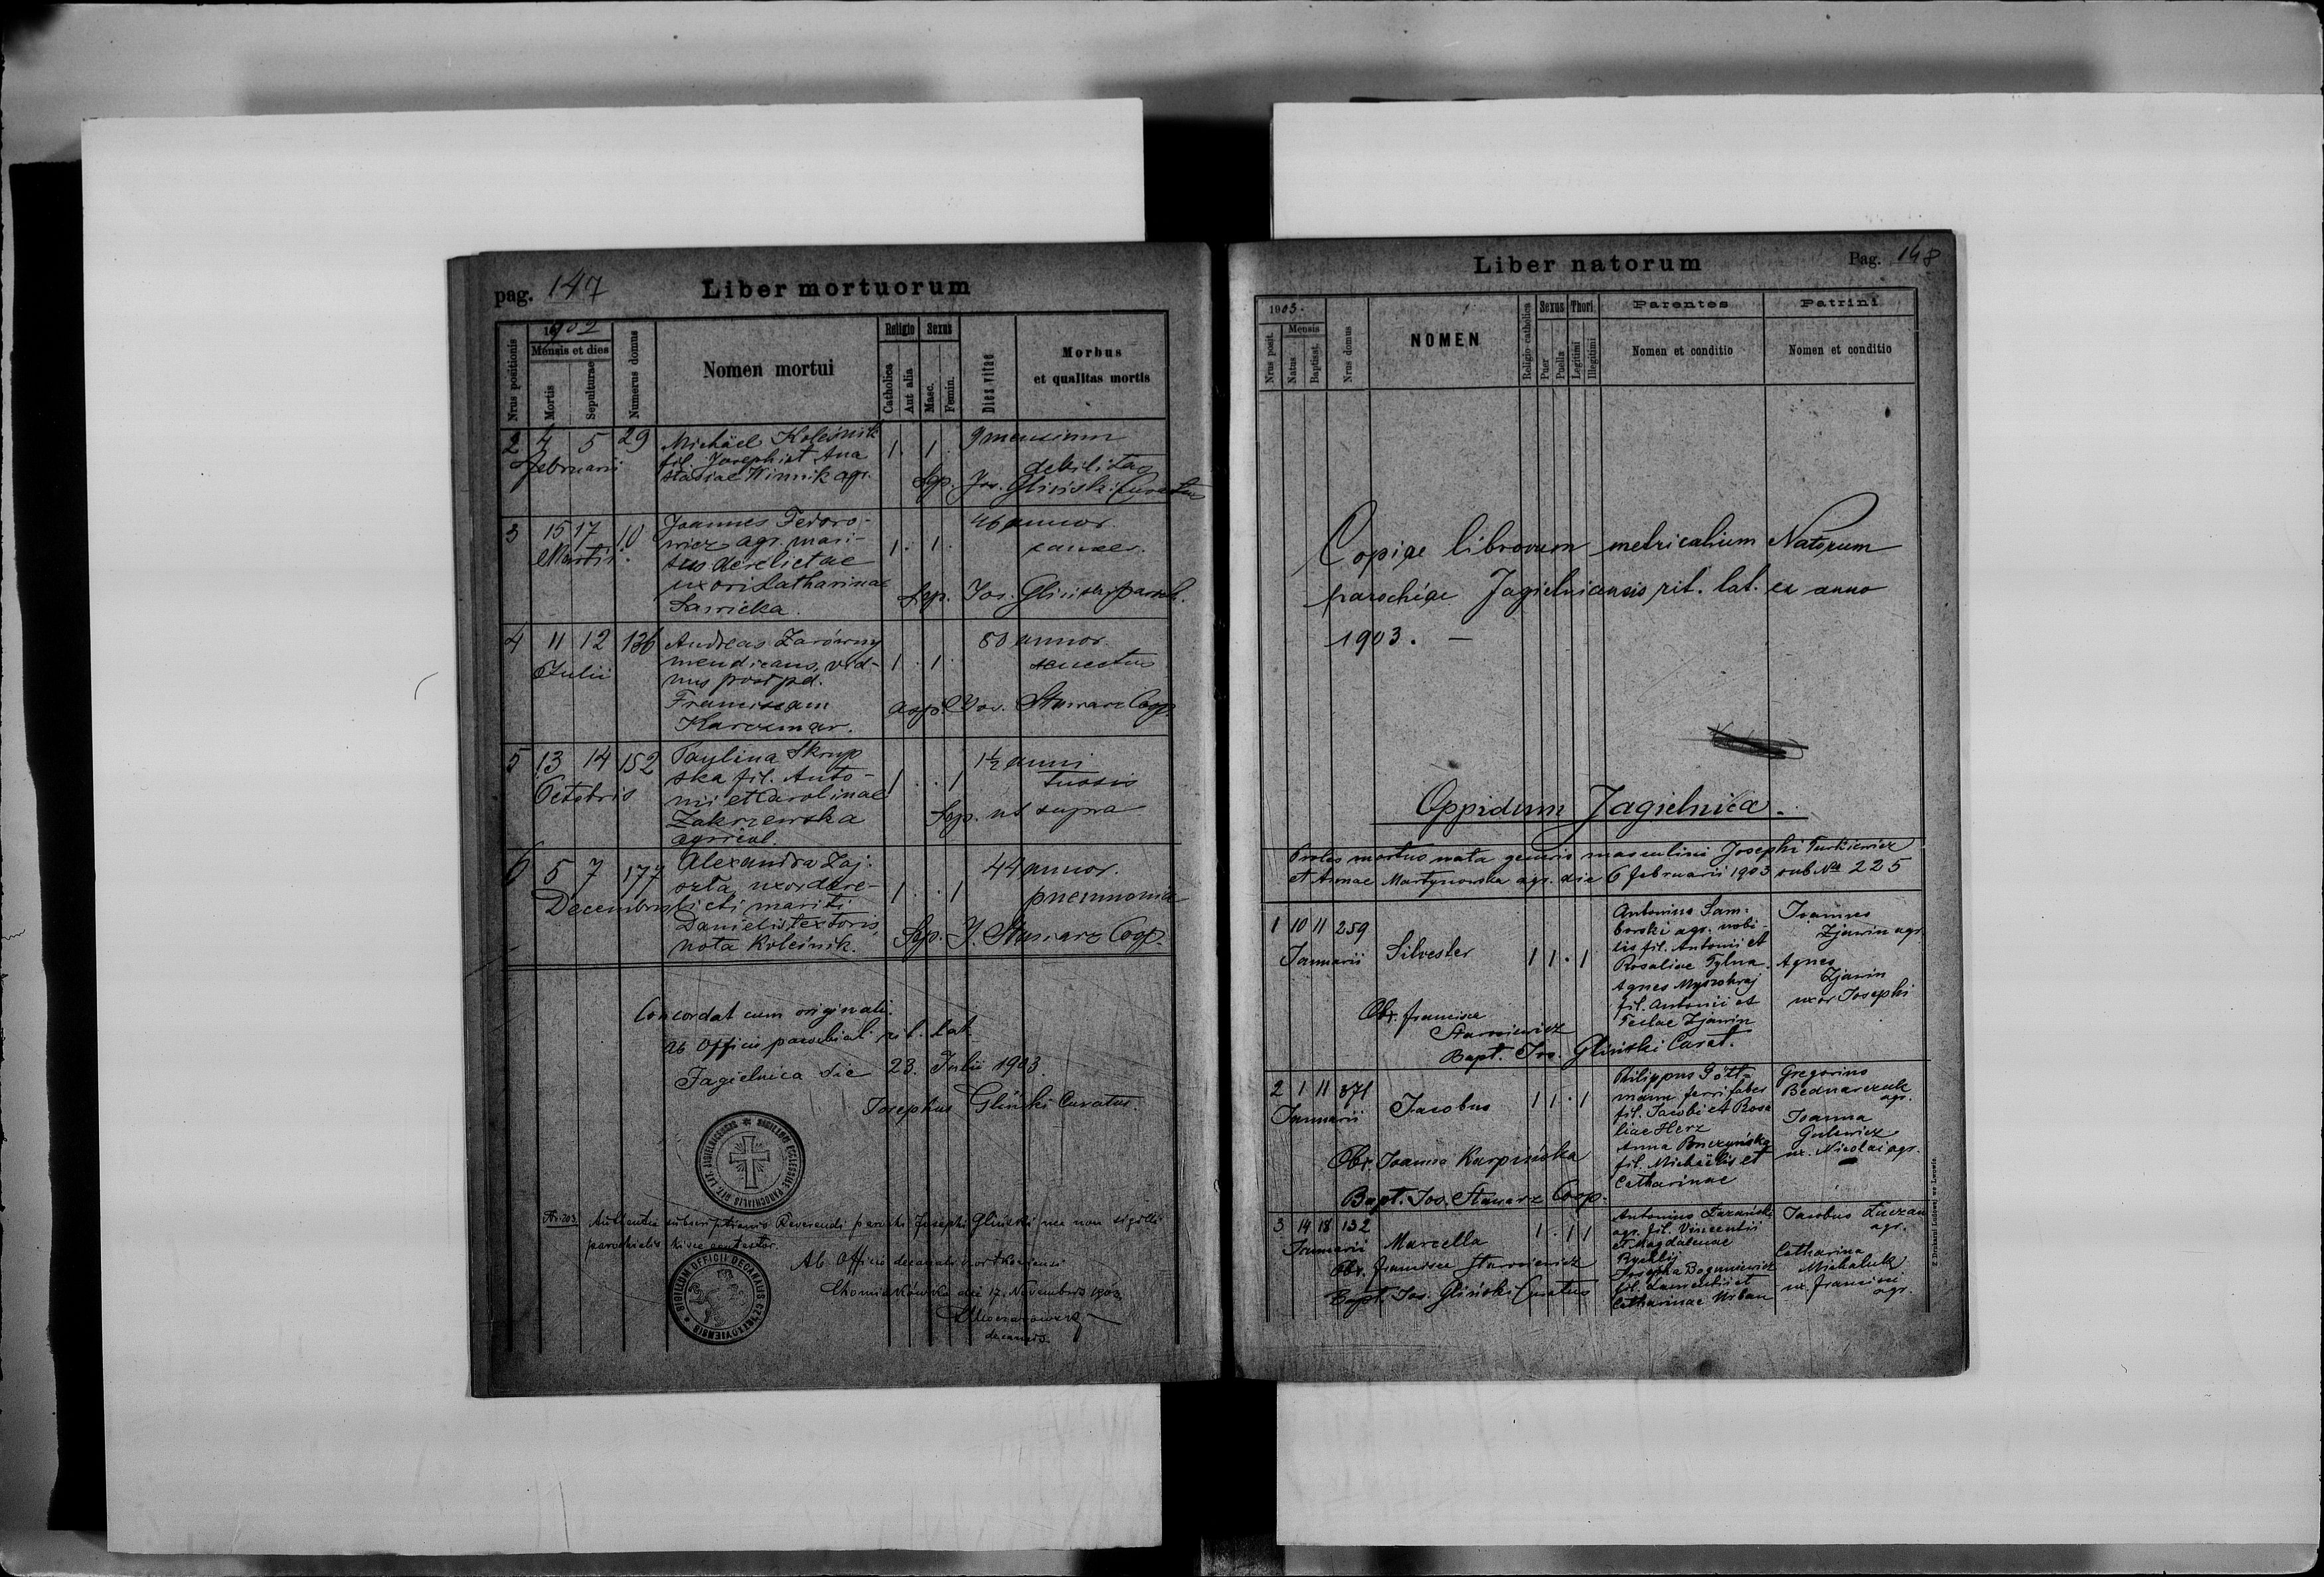 pag. 147
Liber mortuorum
1902
Nrus positionis
Mensis et dies
Mortis
Sepulturae
Numerus domus
Nomen mortui
Religio
Catholica
Aut alia
Sexus
Masc.
Femin.
Dies vitae
Morbus
et qualitas mortis
2 4 5 29 Michäel Koleśnik 1. 1. 9 mensium
Februarii fil. Josephi et Ana
stasiae Winnik agr. debilitas
Sep. Jos. Gliński Curatus
3 15 17 10 Joannes Fedoro- 1. 1. 46 annor.
Martii wicz agr. mari- cancer.
tus derelictae
uxori Catharinae
Sawicka. Sep. Jos. Gliński paroch.
4 11 12 136 Andreas Zarówny 1. 1. 80 annor.
Julii mendicans, vid- senectus
uus post pd.
Franciscam
Karczmar. Jos. Stwiarz Coop.
5 13 14 152 Paulina Skrup 1. . 1 1½ anni
Octobris ska fil. Anto- tussis
nii et Carolinae
Zakrzewska Sep. ut supra
agricol.
6 5 7 177 Alexandra Zaj- 1. . 1 44 annor.
Decembris uxor dere- pneumonia
licti mariti
Danielis textoris,
nota Koleśnik. Sep. J. Stwiarz Coop.
Concordat cum originali.
Ab Officio parochiali rit. lat.
Jagielnica die 23. Julii 1903.
Josephus Gliński Curatus.
SIGILLUM ECCLESIAE PAROCHIALIS RIT. LAT. JAGIELNICENSIS
Nr. 203 Reverendi parochi Josephi Gliński nec non sigilli
parochialis hisce contestor
Ab Officio decanali
die 17. Novembris 1903
decanus.
SIGILLUM OFFICII DECANALIS CZORTKOVIENSIS
Liber natorum
Pag. 148
1903.
Nrus posit.
Mensis
Natus
Baptisat.
Nrus domus
NOMEN
Religio catholica
Sexus
Puer
Puella
Thori
Legitimi
Illegitimi
Parentes
Nomen et conditio
Patrini
Nomen et conditio
Copiae librorum metricalium Natorum
parochiae Jagielnicensis rit. lat. ex anno
1903. —
Oppidum Jagielnica.
Proles mortuo nata generis masculini Josephi Turkiewicz
et Annae Martynowska agr. die 6 februarii 1903 sub No 225
1 10 11 259
Januarii Silvester 1 1 . 1
Antonius Sam-
borski agr. nobi-
lis fil. Antonii et
Rosaliae Tylna.
Agnes
fil. Antonii et
Teclae Zjawin
Joannes
Zjawin agr.
Agnes
Zjawin
uxor Josephi
Obs. Francisca
Starniewicz
Bapt. Jos. Gliński Curat.
2 1 11 371
Januarii Jacobus 1 1 . 1
Philippus Gött-
mann ferri faber
fil. Jacobi et Rosa
liae Herz
Anna Buczyńska
fil. Michäelis et
Catharinae
Gregorius
Bednarczuk
agr.
Joanna
Gulewicz
ux. Nicolai agr.
Obs. Joanna Karpińska
Bapt. Jos. Stwiarz Coop.
3 14 18 132
Januarii Marcella 1 . 1 1
Antonius
agr. fil. Vincentii
et Magdalenae
Rychlij
Josepha Boguniewicz
fil. Laurentii et
Catharinae Urban
Jacobus
agr.
Catharina
Michaluk
ux. Francisci
agr.
Obs. Francisca Starniewicz
Bapt. Jos. Gliński Curatus
Z Drukarni Ludowej we Lwowie.